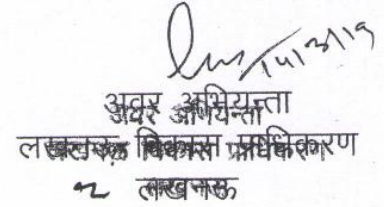 अवर अभियन्ता
लखनऊ विकास प्राधिकरण
लखनऊ